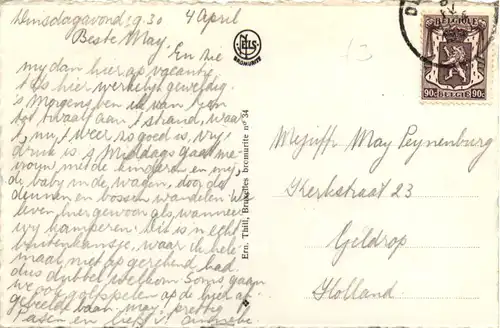 Dinsdagavond 9.30 4 April
Beste May. En zie
my dan hier op vacantie
't Is hier werkelijk geweldig.
's Morgens ben ik van tien
tot twaalf aan 't strand, waar
nu 't weer zo goed is, vry
druk is. 's Middags gaat me-
vrouw met de kinderen en my,
de baby in de wagen, door de
duinen en bossen wandelen. We
leven hier gewoon als wanneer
wy kamperen. Dit is n echt
buitenkansje, waar ik hele-
maal niet op gerekend had.
dus dubbel welkom. Soms gaan
we ook golfspelen op de hier af-
gebeelde baan. May, prettig
Pasen en
NELS
BROMURITE
Ern. Thill, Bruxelles bromurite no 34
BELGIQUE
90c BELGIE 90c
Mejuffr May Peynenburg
Kerkstraat 23
Gildrop
Holland